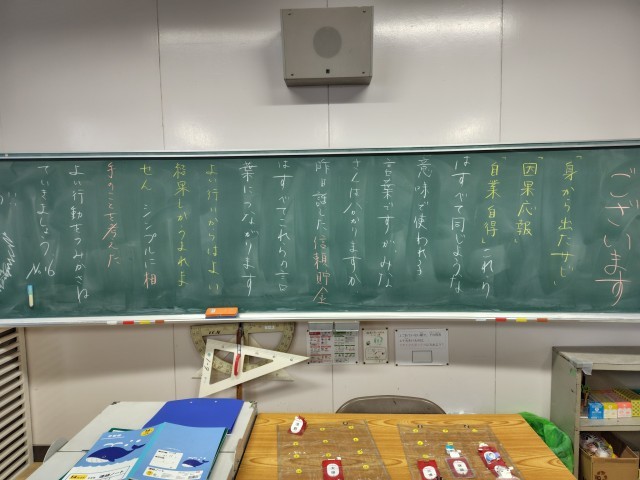 ございます
「身から出たサビ」
「因果応報」
「自業自得」これら
はすべて同じような
意味で使われる
言葉ですが みな
さんは分かりますか
昨日話した信頼貯金
はすべてこれらの言
葉につながります
よい行いからはよい
結果しかうまれま
せん シンプルに相
手のことを考えた
よい行動をつみかさね
ていきましょう